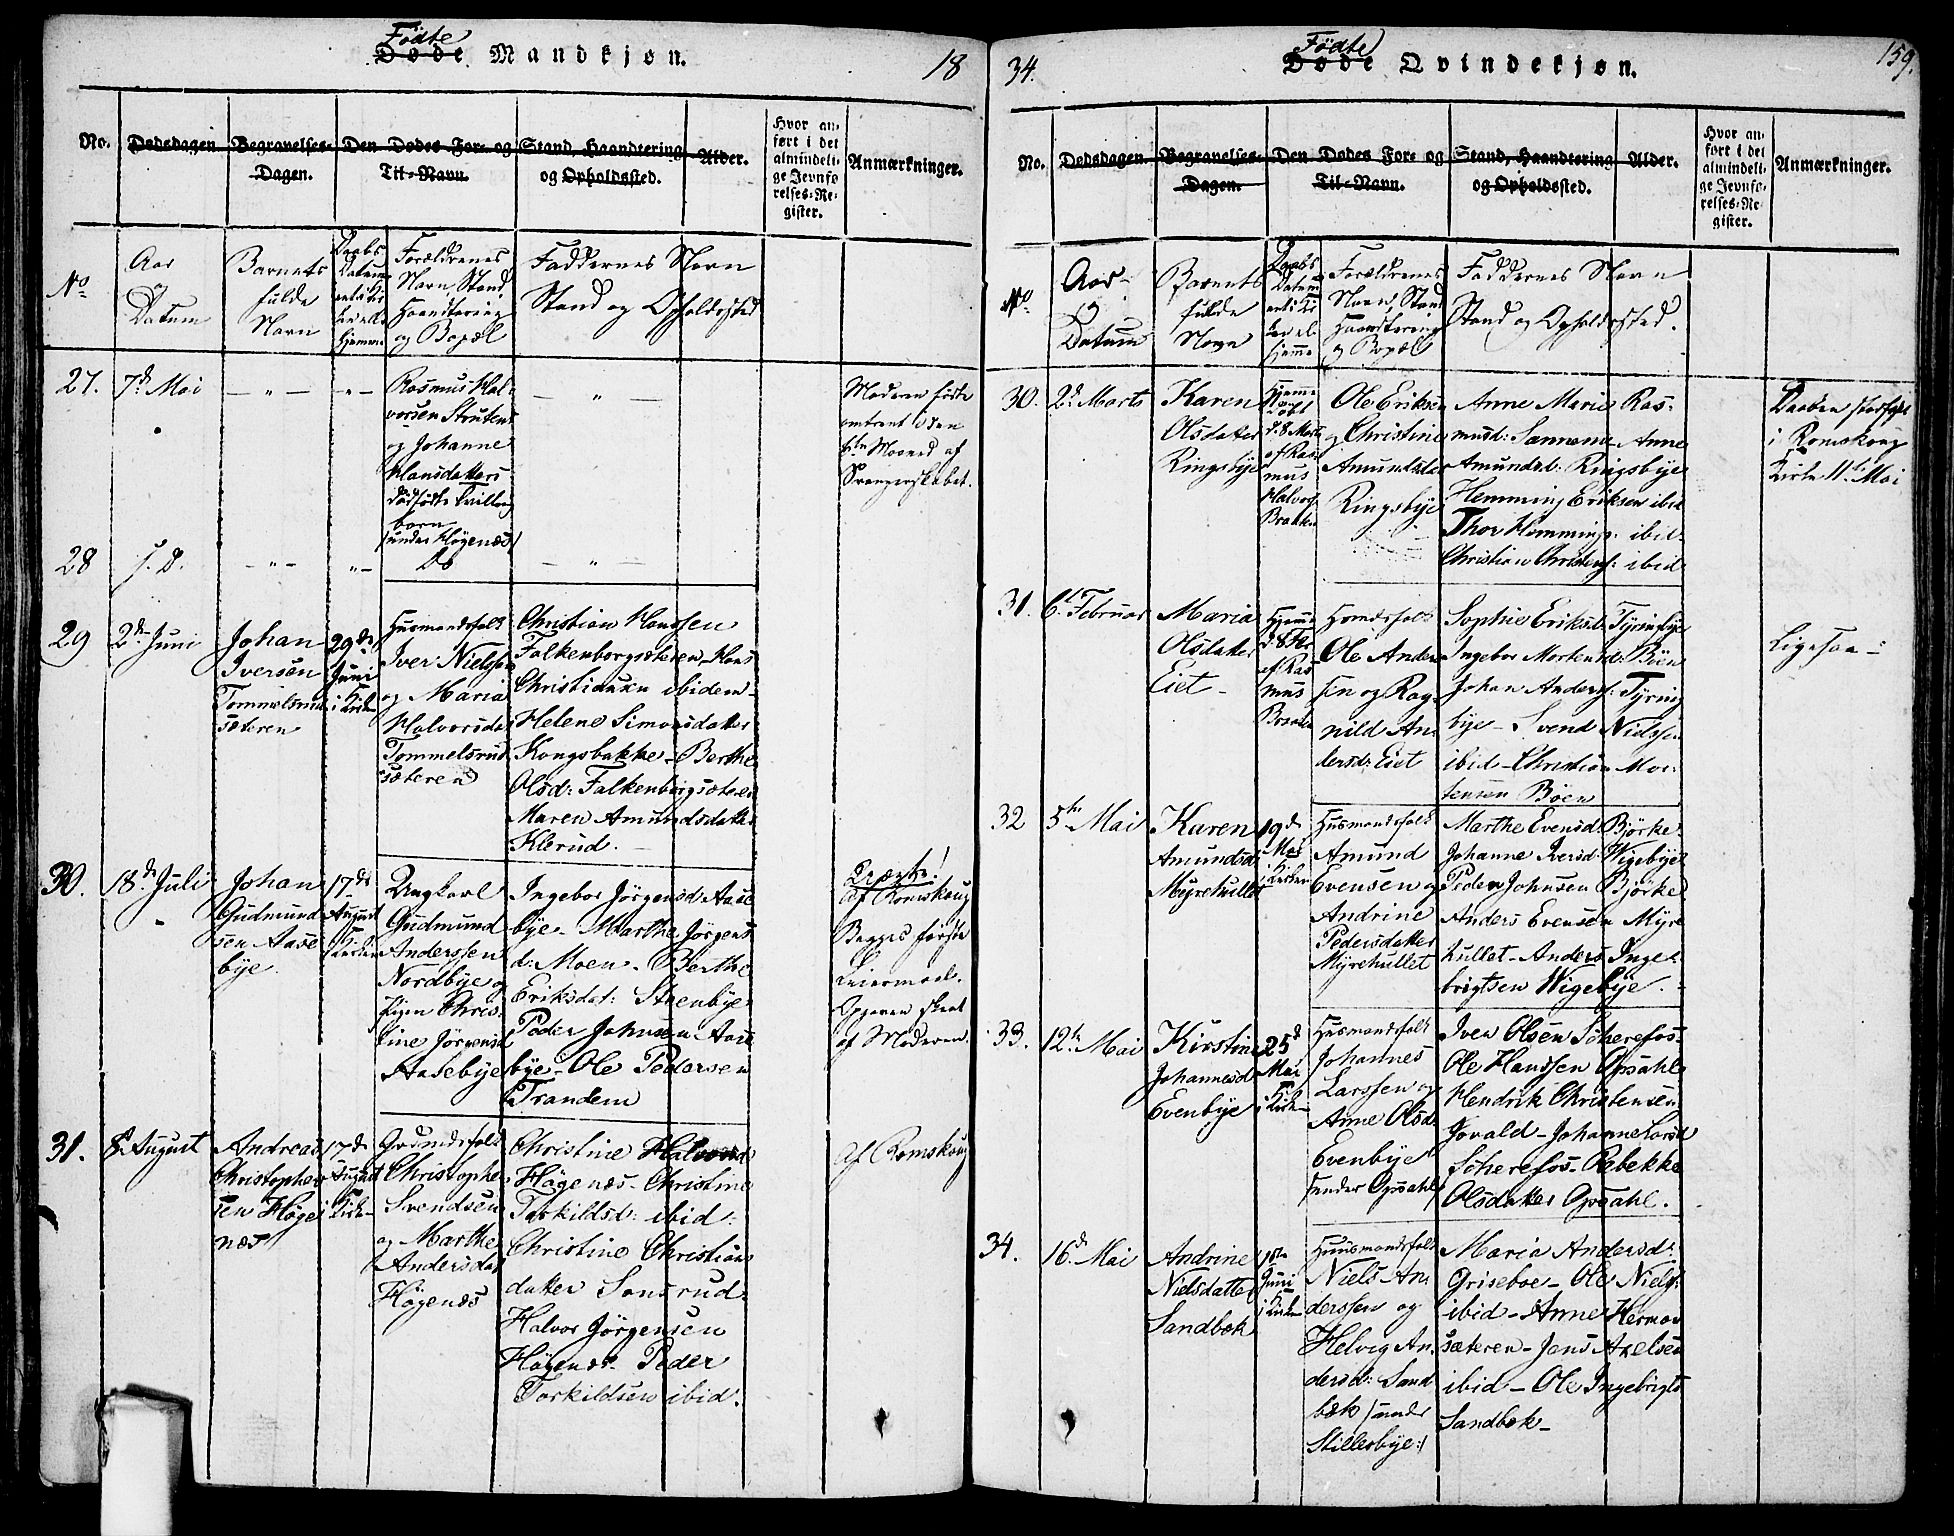 Födte
Døde Mandkjøn.
18
No.
Dødsdagen
Begravelses-
Dagen.
Den Dødes For- og
Til-Navn.
Stand, Haandtering
og Opholdssted.
Alder.
Hvor an-
ført i det
almindeli-
ge Jevnfø-
relses-Re-
gister.
Anmærkninger.
No
Aar
og
Datum
Barnets
fulde
Navn
Daabs
Datum
Forældrenes
Navn, Stand,
Haandtering
og Bopæl
Faddernes Navn
Stand og Opholdssted
27.
7de Mai
Rasmus Hal-
vorsen Struten
og Johanne
Hansdatters
dödfödte Tvilling
born
under Høgenæs
Moderen födte
omtrent i den
6te Maaned af
Svangerskabet.
28
s. D.
Do
29
2de Juni
Johan
Iversen
Tommelsrud
sæteren
29de
Juni
i Kirken
Husmandsfolk
Iver Nielsen
og Maria
Halvorsdat
Tommelsrud
sæteren
Christian Hanssen
Falkenborgsæteren - Hans
Christiansen ibidem -
Helene Simonsdatter
Kongsbakke - Berthe
Olsd: Falkenborgsæteren
Maren Amundsdatter
Klerud. -
30.
18de Juli
Johan
Gudmund
sen Aase
bye.
17de
August
i Kirken
Ungkarl
Gudmund
Anderssen
Nordbye og
Pigen Chris-
tine Jörgensd
Aasebye
Ingebor Jörgensd Aase
bye - Marthe Jörgens
d: Moen - Berthe
Eriksdat: Steenbye
Peder Johnsen Aase
bye - Ole Pedersen
Trandem
Uægte!
Af Romskoug
Begges første
Leiermaal.
Opgaven skeet
af Moderen.
31.
8de August
Andreas
Christopher
sen Høge
næs
17de
August
i Kirken
Grdmdsfolk
Christopher
Svendsen
og Marthe
Andersdat
Høgenæs
Christine Halvorsd
Høgenæs - Christine
Torkildsd: ibid:
Christine Christians
datter Sonsrud:
Halvor Jörgensen
Høgenæs - Peder
Torkildsen ibid.
Af Romskoug
34.
Födte
Døde Qvindekjøn.
159.
No.
Dødsdagen.
Begravelses-
Dagen.
Den Dødes For- og
Til-Navn.
Stand, Haandtering
og Opholdssted.
Alder.
Hvor an-
ført i det
almindeli-
ge Jevnfø-
relses-Re-
gister.
Anmærkninger.
No
Aar
og
Datum
Barnets
fulde
Navn
Daabs
Datum
enti Kir
ken el.
hjemme
Forældrenes
Navn, Stand
Haandtering
og Bopæl
Faddernes Navn
Stand og Opholdssted.
30.
2de Marts
Karen
Olsdatter
Ringsbye
Hjemme
döbt
d. 8 Marts
af Ras
mus
Halvors
Braaten
Ole Eriksen
og Christine
Amundsdat
Ringsbye
Anne Marie Ras-
musd: Sannem Anne
Amundsd: Ringsbye
Hemming Eriksen ibid
Thor Hemmings: ibid:
Christian Christens: ibid
Daaben stadfæst
i Romskoug
Kirke 11te Mai
31.
6te Februar
Maria
Olsdatter
Eiet -
Hjemme
af Ras
mus
Braaten
Ole Ander
sen og Rag-
nild An-
dersd: Eiet
Sophie Eriksd: Tyringbye
Ingebor Mortensd: Böen
Johan Anders: Tyring
bye - Svend Nielsen
ibid - Christian Mor-
tensen Böen
Ligesaa -
32
5te Mai
Karen
Amundsd
Myrehullet
19de
Mai
i Kirken
Husmandsfolk
Amund
Evensen og
Andrine
Pedersdatter
Myrehullet
Marthe Evensd: Björke
Johanne Iversd: Wigebye
Peder Johnsen Björke
Anders Evensen Myre
hullet - Anders Inge-
brigtsen Wigebye.
33.
12te Mai
Kirstine
Johannesd
Evenbye
25de
Mai
i Kirken
Husmandsfolk
Johannes
Larssen og
Anne Olsd:
Evenbye
under Opsahl
Iver Olsen Scherefos-
Ole Hanssen Opsahl
Hendrik Christensen
Jovald - Johanne Larsd
Scherefos - Rebekke
Olsdatter Opsahl.
34.
16de Mai
Andrine
Nielsdatter
Sandbæk
1ste
Juni
i Kirken
Huusmandsfolk
Niels An-
derssen og
Helvig An-
dersd: Sand
bæk /:under
Stillesbye:/
Maria Andersd:
Griseboe - Ole Niels:
ibid - Anne Hermon
sæteren - Jens Axelsen
ibid - Ole Ingebrigts
Sandbæk -